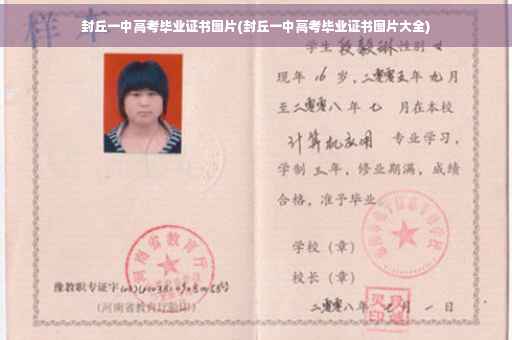 封丘一中高考毕业证书图片(封丘一中高考毕业证书图片大全)
样本
学生 段毅琳 性别 女
现年 16 岁，二零零五年 九月
至二零零八年 七 月在本校
计算机应用 专业学习，
学制 三年，修业期满，成绩
合格，准予毕业
学校（章）
校长（章）
河南省教育厅
豫教职专证字
(河南省教育厅验印)
二零零八年 月 一 日